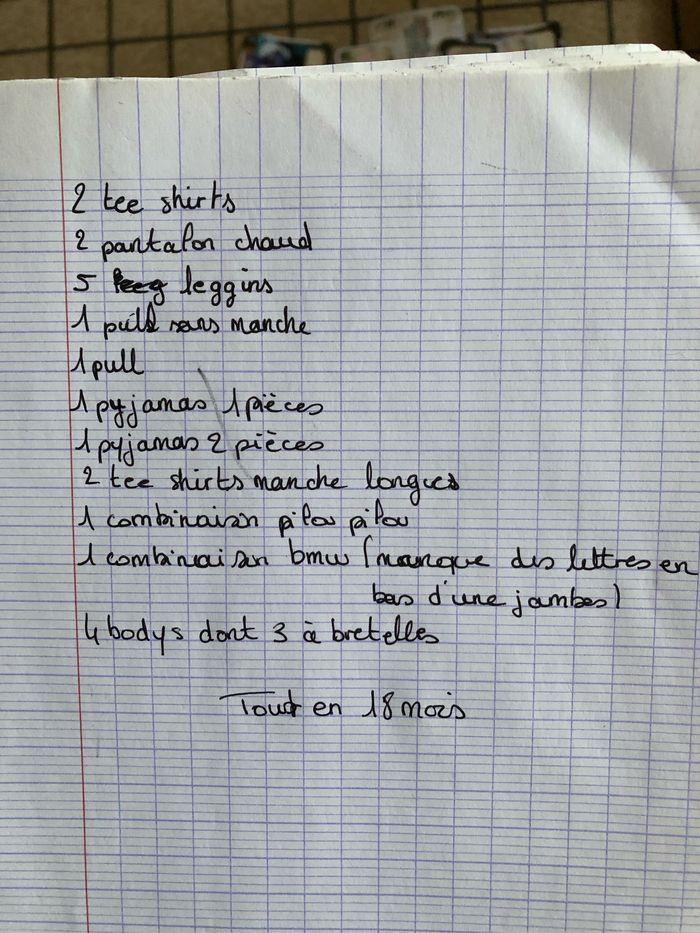 2 tee shirts
2 pantalon chaud
5 leggins
1 pull sans manche
1 pull
1 pyjamas 1 pièces
1 pyjamas 2 pièces
2 tee shirts manche longues
1 combinaison pilou pilou
1 combinaison bmw (manque des lettres en
bas d'une jambes)
4 bodys dont 3 à bretelles
Tout en 18 mois